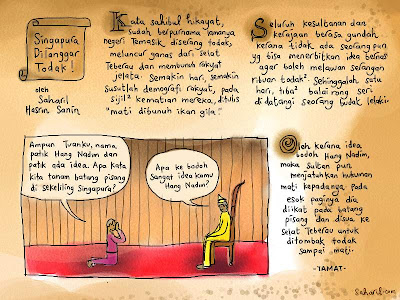 Singapura
Dilanggar
Todak!
oleh
Saharil
Hasrin Sanin
Kata sahibul hikayat,
sudah berpurnama lamanya
negeri Temasik, diserang todak,
meluncur ganas dari selat
Teberau dan membunuh rakyat
jelata. Semakin hari, semakin
susutlah demografi rakyat, pada
sijil² kematian mereka, ditulis
"mati dibunuh ikan gila".
Seluruh kesultanan dan
kerajaan berasa gundah
kerana tidak ada seorang pun
yg bisa menerbitkan idea bernas
agar boleh melawan serangan
ribuan todak². Sehinggalah satu
hari, tiba² balai rong seri
di datangi seorang budak lelaki.
Ampun Tuanku, nama
patik Hang Nadim dan
patik ada idea. Apa kata
kita tanam batang pisang
di sekeliling Singapura?
Apa ke bodoh
sangat idea kamu
Hang Nadim?
Oleh kerana idea
bodoh Hang Nadim,
maka Sultan pun
menjatuhkan hukuman
mati kepadanya. Pada
esok paginya dia
diikat pada batang
pisang dan dijua ke
selat Teberau untuk
ditombak todak
sampai mati.
-TAMAT-
saharil.com